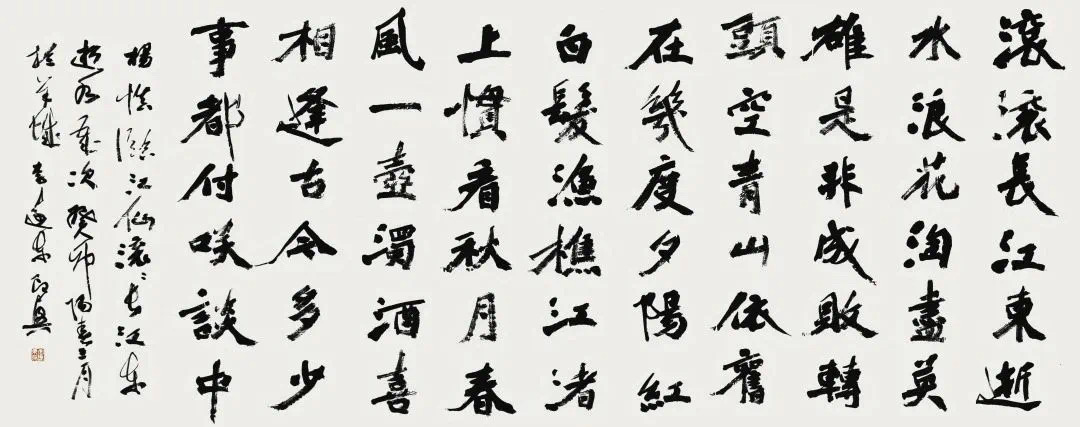 滾滾長江東逝
水浪花淘盡英
雄是非成敗轉
頭空青山依舊
在幾度夕陽紅
白髮漁樵江渚
上慣看秋月春
風一壺濁酒喜
相逢古今多少
事都付咲談中
楊慎臨江仙滾〻長江東
逝水歲次癸卯陽春三月
於羊城